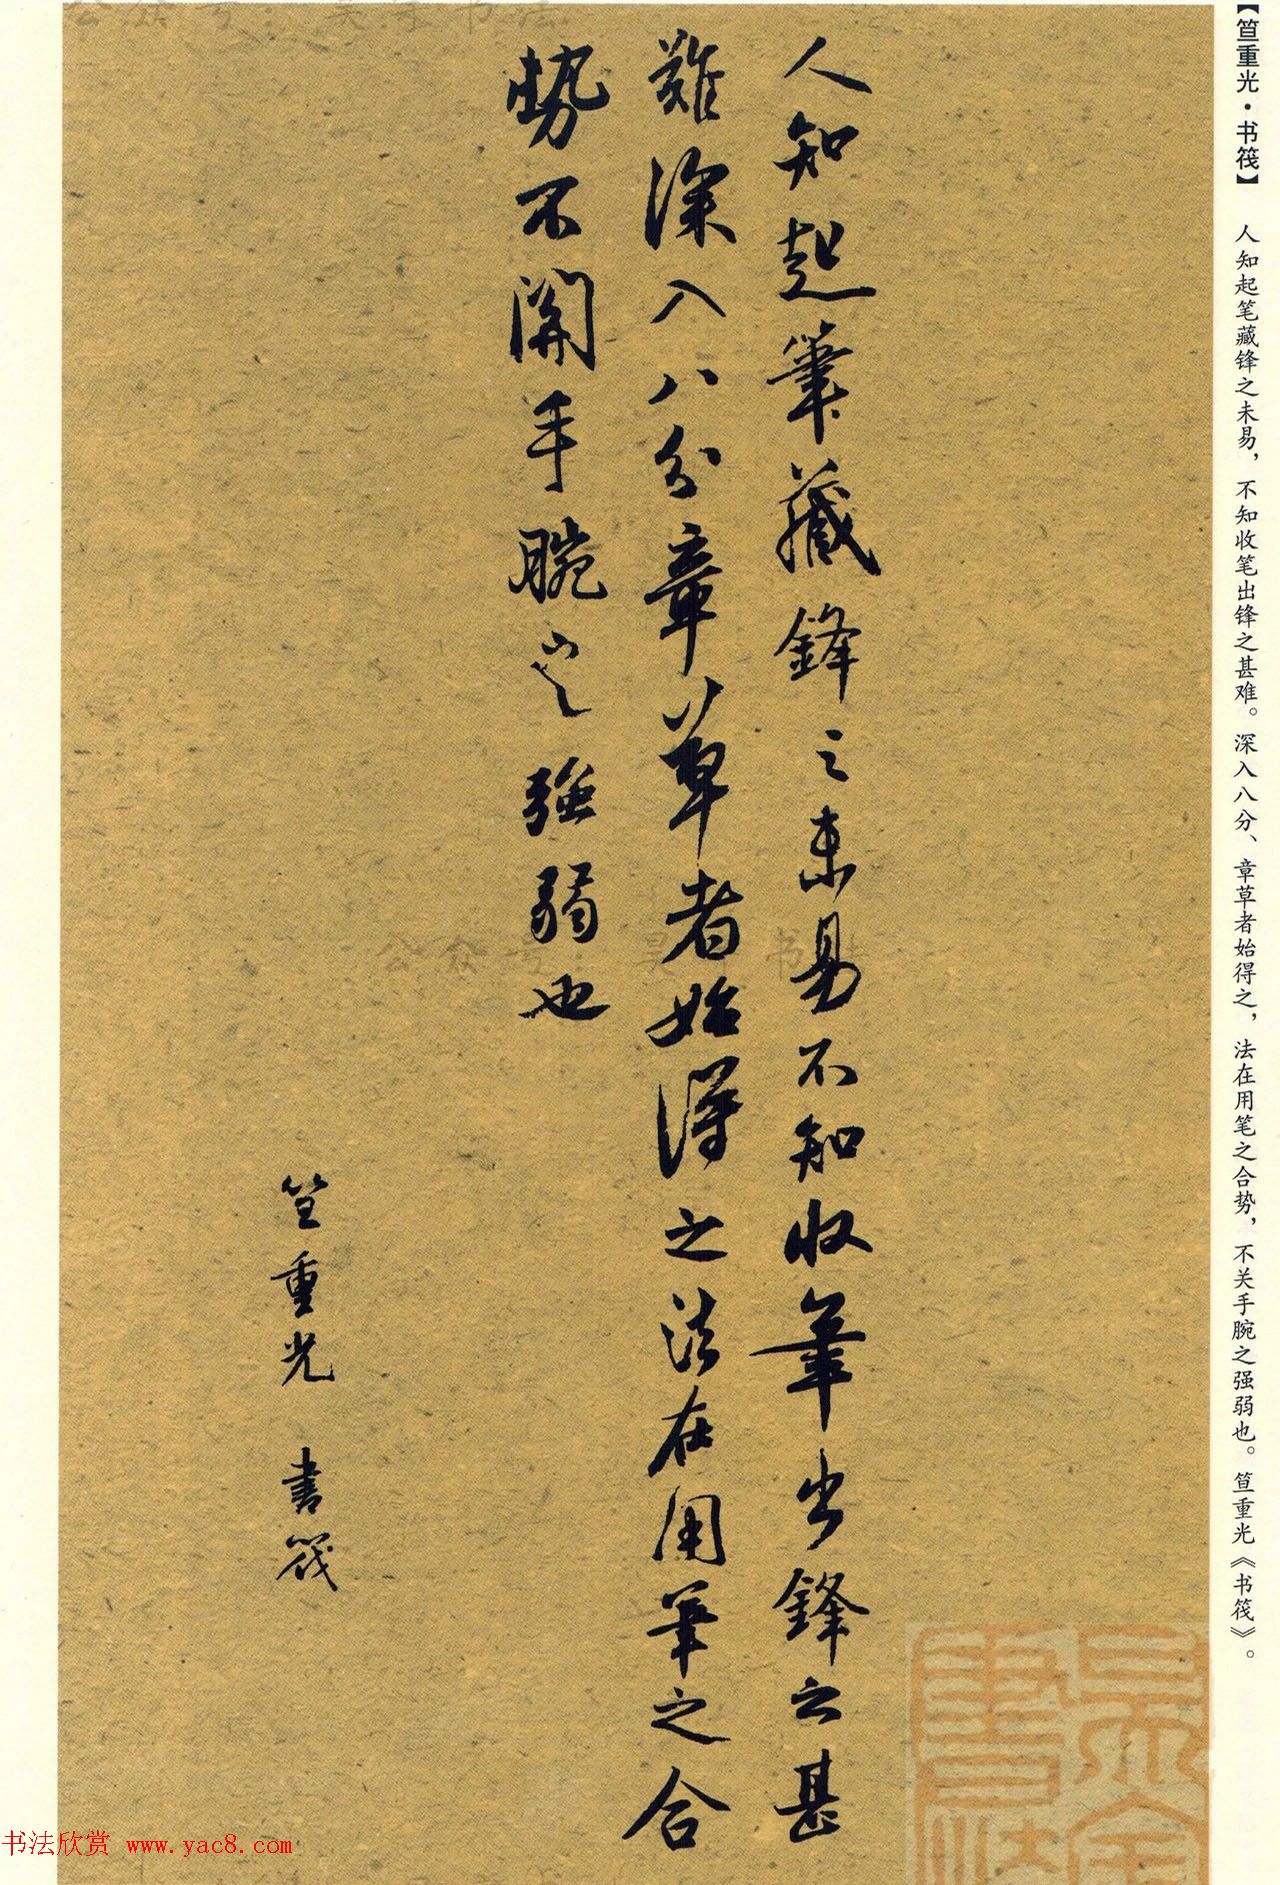 【笪重光·书筏】 人知起笔藏锋之未易，不知收笔出锋之甚难。深入八分、章草者始得之，法在用笔之合势，不关手腕之强弱也。笪重光《书筏》。
人知起筆藏鋒之未易不知收筆出鋒之甚
難深入八分章草者始得之法在用筆之合
勢不關手腕之強弱也
笪重光 書筏
书法欣赏 www.yac8.com